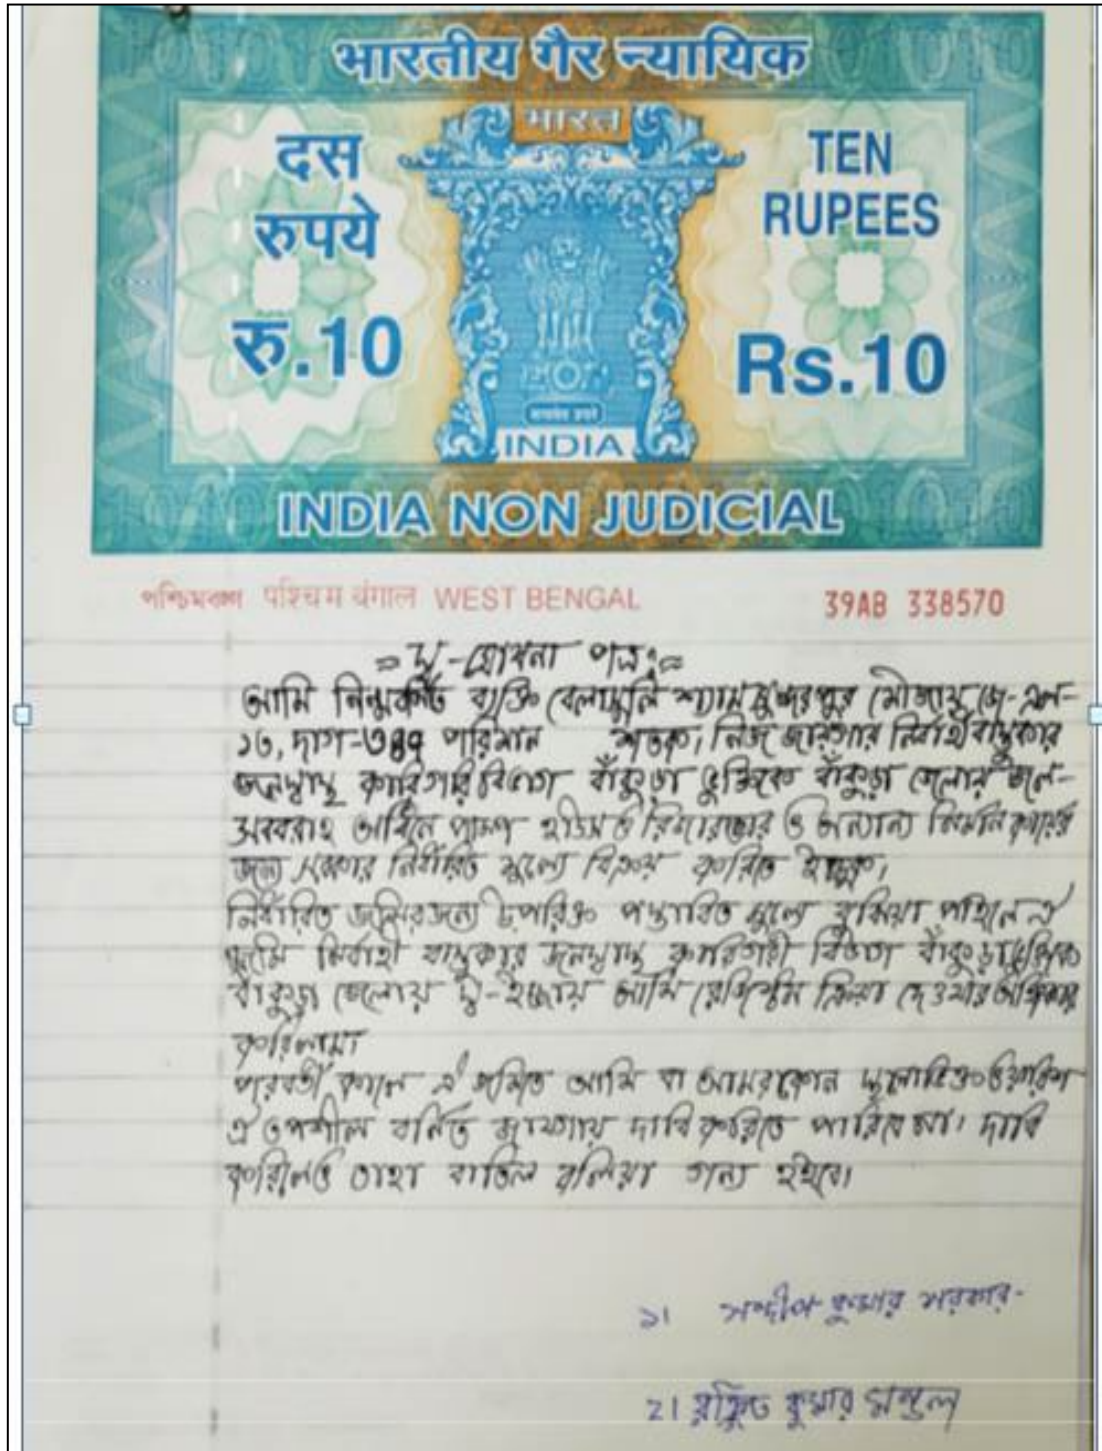 भारतीय गैर न्यायिक
भारत
दस
रुपये
रु.10
TEN
RUPEES
Rs.10
INDIA
INDIA NON JUDICIAL
পশ্চিমবঙ্গ पश्चिम बंगाल WEST BENGAL
39AB 338570
স্ব-ঘোষনা পত্র
আমি নিম্নবর্নিত ব্যক্তি শ্যামসুন্দরপুর মৌজায় জে-এল-
১৬, দাগ-৩৪৭ পরিমান শতক, নিজ জায়গার নির্বাহী বাস্তুকার
জনস্বাস্থ্য কারিগরি বিভাগ বাঁকুড়া ভুক্তিকে বাঁকুড়া জেলায় জল-
সরবরাহ পাম্প হাউস ও ও অন্যান্য নির্মান কার্যের
জন্য সরকার নির্ধারিত মূল্যে বিক্রয় করিতে ইচ্ছুক।
নির্ধারিত জমির জন্য উপরিক্ত মূল্য বুঝিয়া পাইলে ঐ
জমি নির্বাহী বাস্তুকার জনস্বাস্থ্য কারিগরী বিভাগ বাঁকুড়া
বাঁকুড়া জেলায় স্ব-ইচ্ছায় আমি দেওয়ার অঙ্গিকার
করিলাম।
পরবর্তী কালে ঐ জমিতে আমি বা আমার কোন ওয়ারিশ
ঐ তপশীল বর্নিত জায়গায় দাবি করিতে পারিবে না। দাবি
করিলেও তাহা বাতিল বলিয়া গন্য হইবে।
১। সন্দীপ কুমার সরকার
২। কুমার মন্ডল